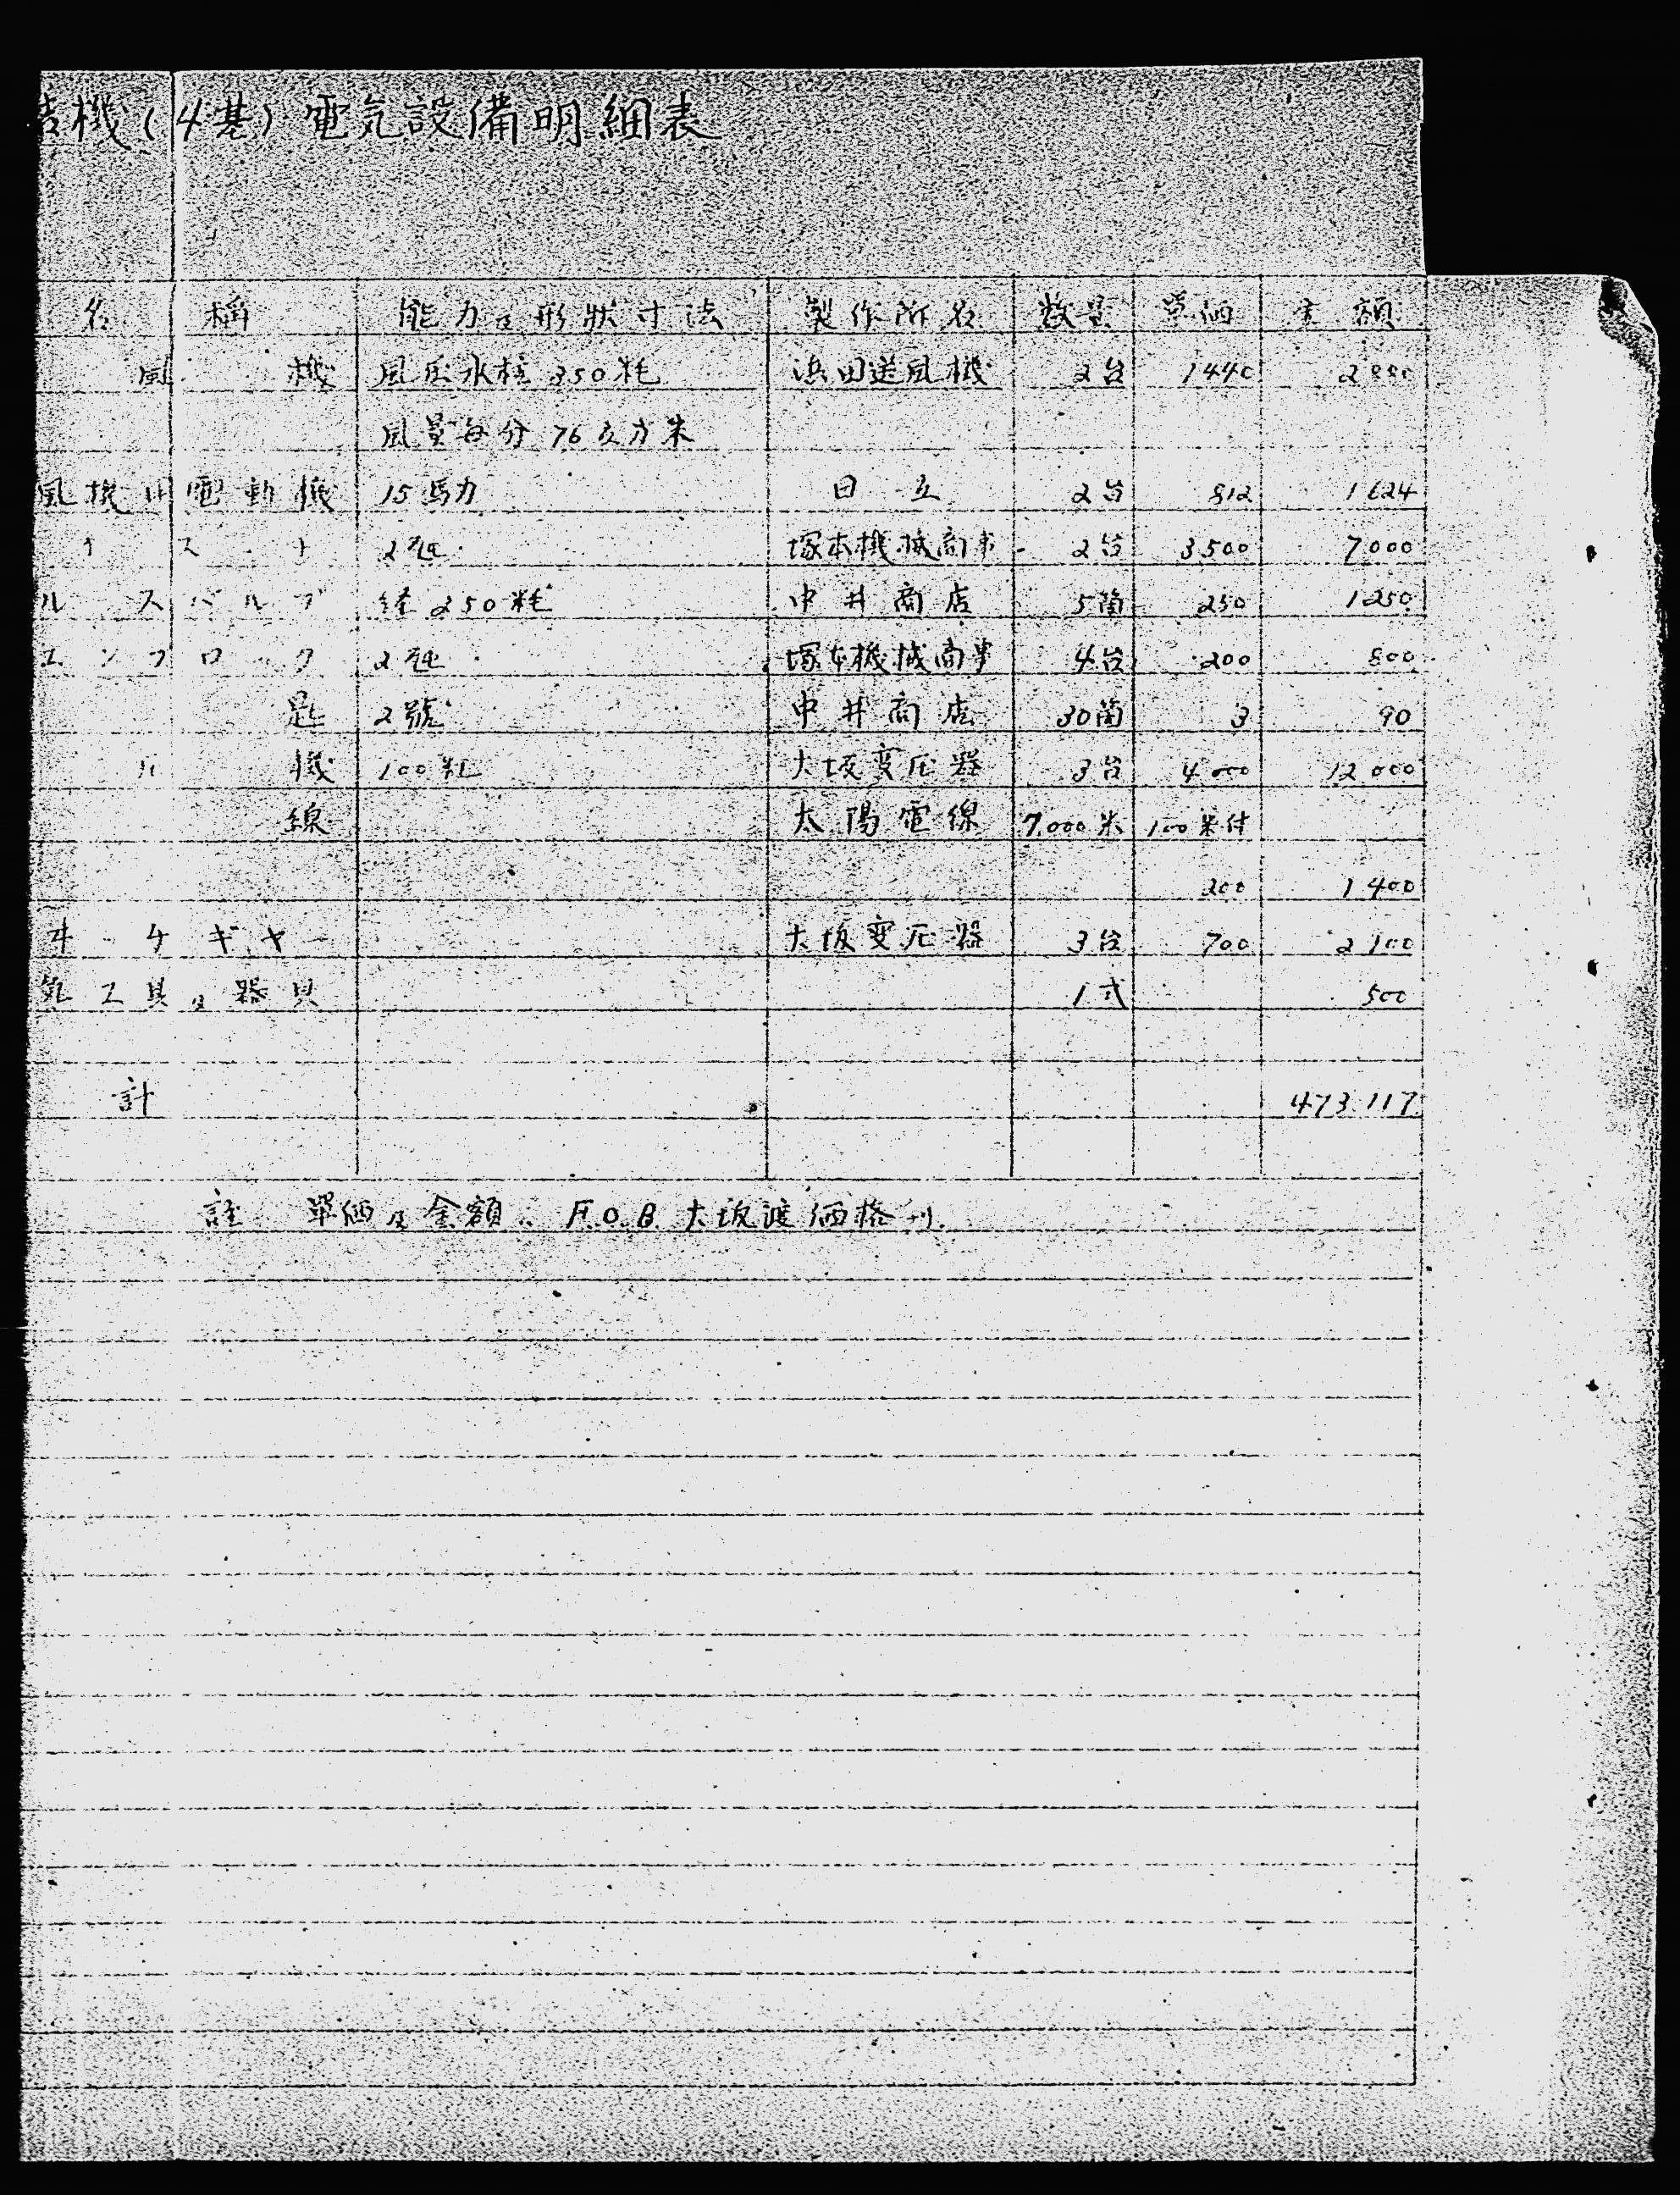 機(4基)電気設備明細表
名 稱 能力及形狀寸法 製作所名 数量 単価 金額
風 機 風圧水柱350粍 浜田送風機 2台 1440 2880
風量毎分76立方米
風機用電動機 15馬力 日立 2台 812 1624
2屯 塚本機械商事 2台 3500 7000
ルスバルブ 径250粍 中井商店 5箇 250 1250
エンブロック 2屯 塚本機械商事 4台 200 800
匙 2號 中井商店 30箇 3 90
機 100 大坂変圧器 3台 4000 12000
線 太陽電線 7,000米 100米付
200 1400
チギヤ 大坂変圧器 3台 700 2100
気工具及器具 1式 500
計 473.117
註 単価及金額 F.O.B. 大坂渡価格